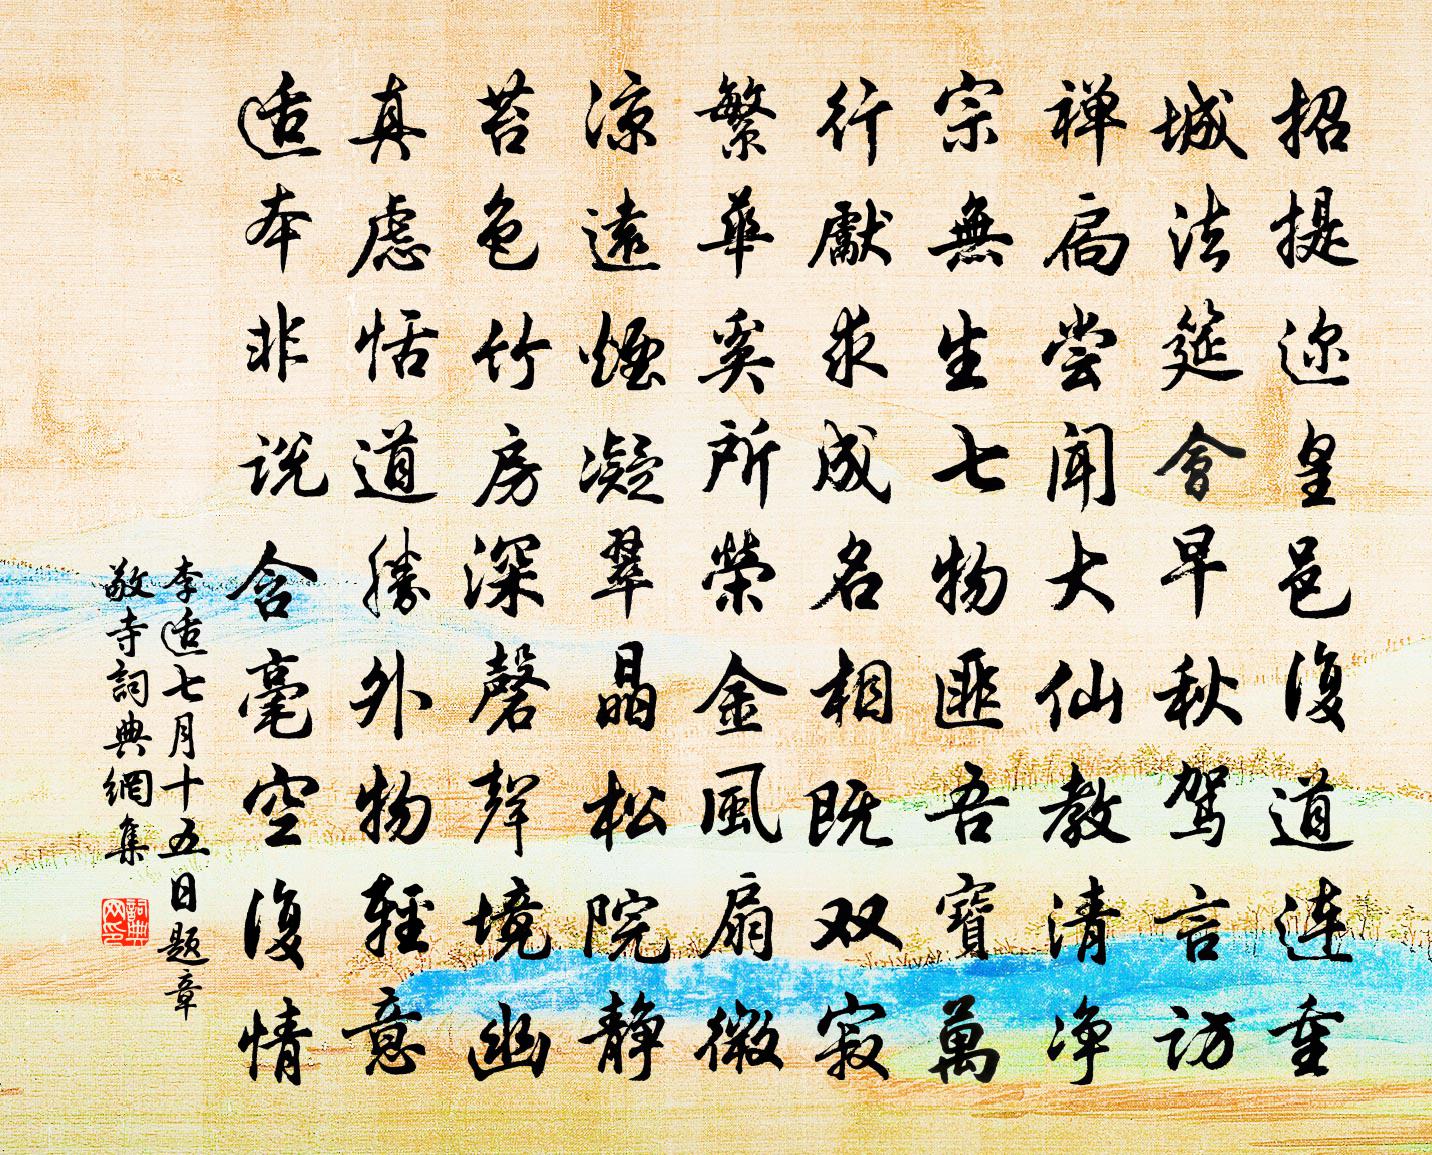 招提迩皇邑復道连重
城法筵會早秋驾言访
禅扃尝闻大仙教清净
宗無生七物匪吾寶萬
行獻求成名相既双寂
繁華奚所榮金風扇微
凉遠煙凝翠晶松院静
苔色竹房深磬声境幽
真虑恬道勝外物輕意
适本非说含毫空復情
李适七月十五日题章
敬寺詞典網集
詞典网印